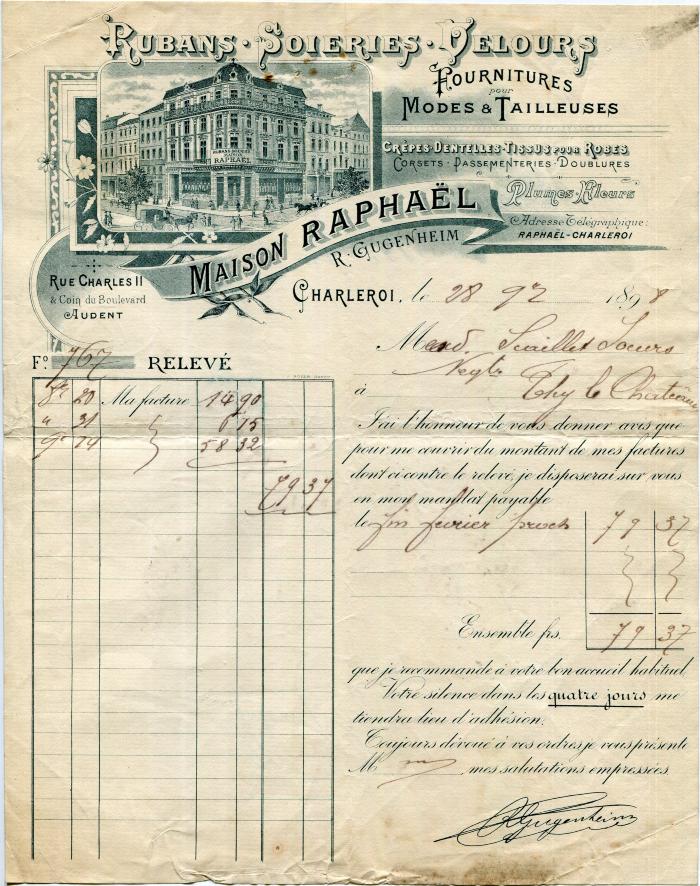 RUBANS · SOIERIES · VELOURS
FOURNITURES
pour
MODES & TAILLEUSES
CRÊPES · DENTELLES · TISSUS POUR ROBES
CORSETS · PASSEMENTERIES · DOUBLURES
Plumes · Fleurs
Adresse Télégraphique:
RAPHAËL-CHARLEROI
RAPHAËL
MAISON RAPHAËL
R. GUGENHEIM
RUE CHARLES II
& Coin du Boulevard
AUDENT
CHARLEROI, le 28 9 1898
Fº 767 RELEVÉ
Scaillet Soeurs
Negts
à Thy le Château
20 Ma facture 14 90
" 31 6 15
14 58 32
79 37
J'ai l'honneur de vous donner avis que
pour me couvrir du montant de mes factures
dont ci contre le relevé, je disposerai sur vous
en mon mandat payable
le fin février proch 79 37
Ensemble frs. 79 37
que je recommande à votre bon accueil habituel.
Votre silence dans les quatre jours me
tiendra lieu d'adhésion.
Toujours dévoué à vos ordres, je vous présente
M mes salutations empressées.
R Gugenheim